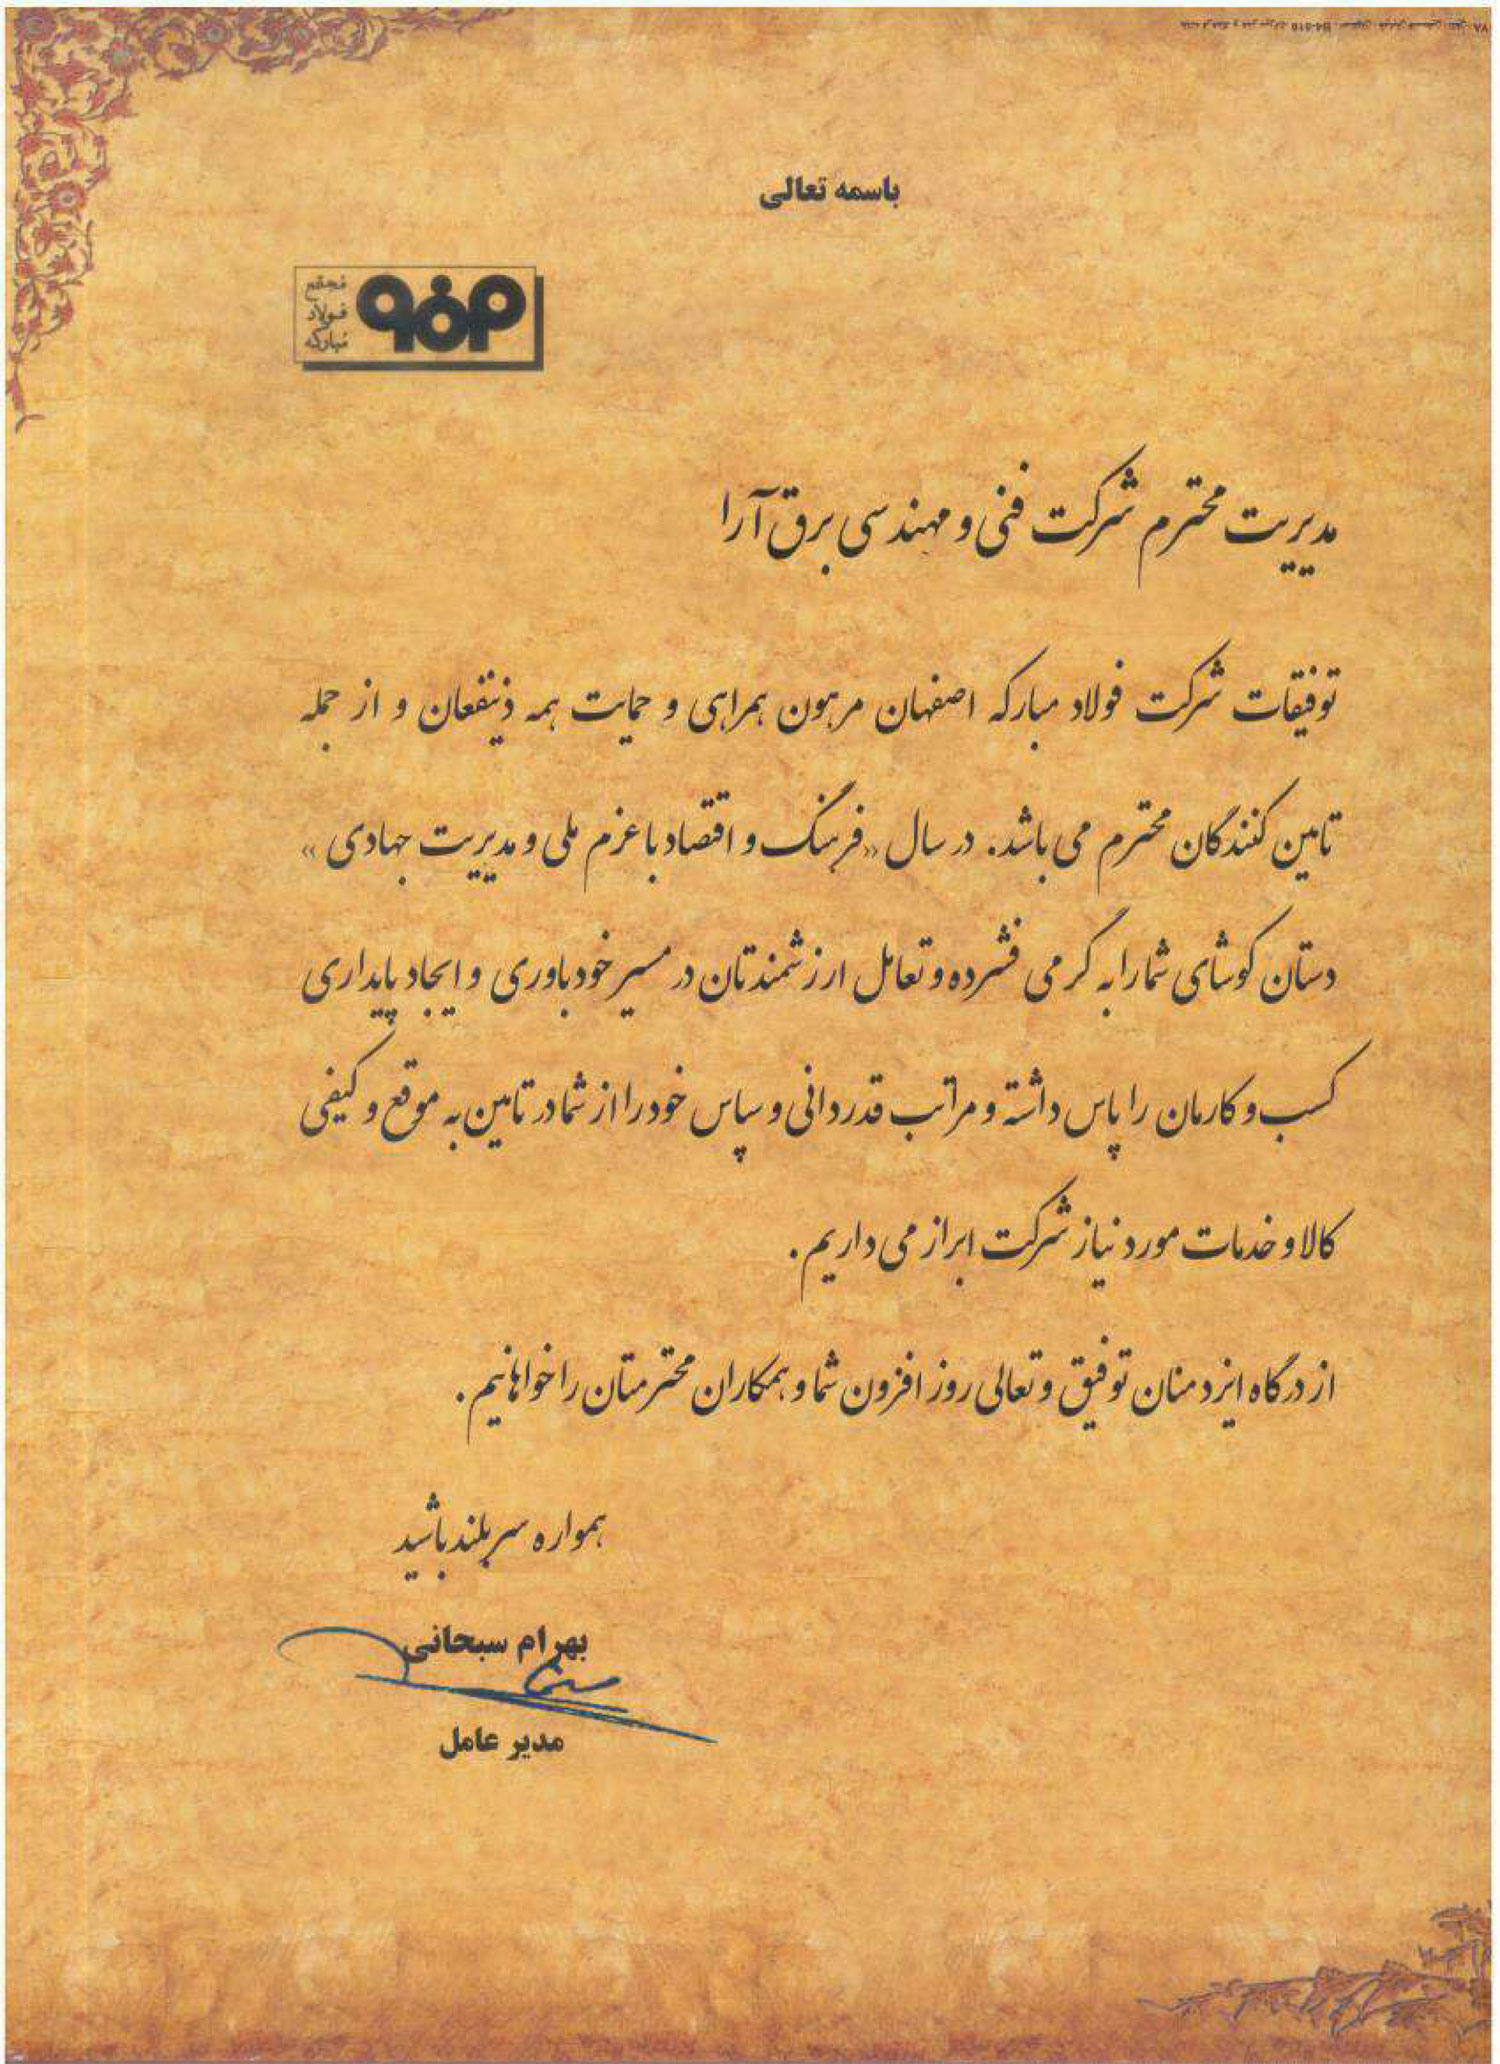 باسمه تعالی
مجتمع
فولاد
مبارکه
مدیریت محترم شرکت فنی و مهندسی برق آرا
توفیقات شرکت فولاد مبارکه اصفهان مرهون همراهی و حمایت همه ذینفعان و از جمله
تامین کنندگان محترم می باشد. در سال «فرهنگ و اقتصاد با عزم ملی و مدیریت جهادی»
دستان کوشای شما را به گرمی فشرده و تعامل ارزشمندتان در مسیر خودباوری و ایجاد پایداری
کسب و کارمان را پاس داشته و مراتب قدردانی و سپاس خود را از شما در تامین به موقع و کیفی
کالا و خدمات مورد نیاز شرکت ابراز می داریم.
از درگاه ایزد منان توفیق و تعالی روز افزون شما و همکاران محترمتان را خواهانیم.
همواره سربلند باشید
بهرام سبحانی
مدیر عامل